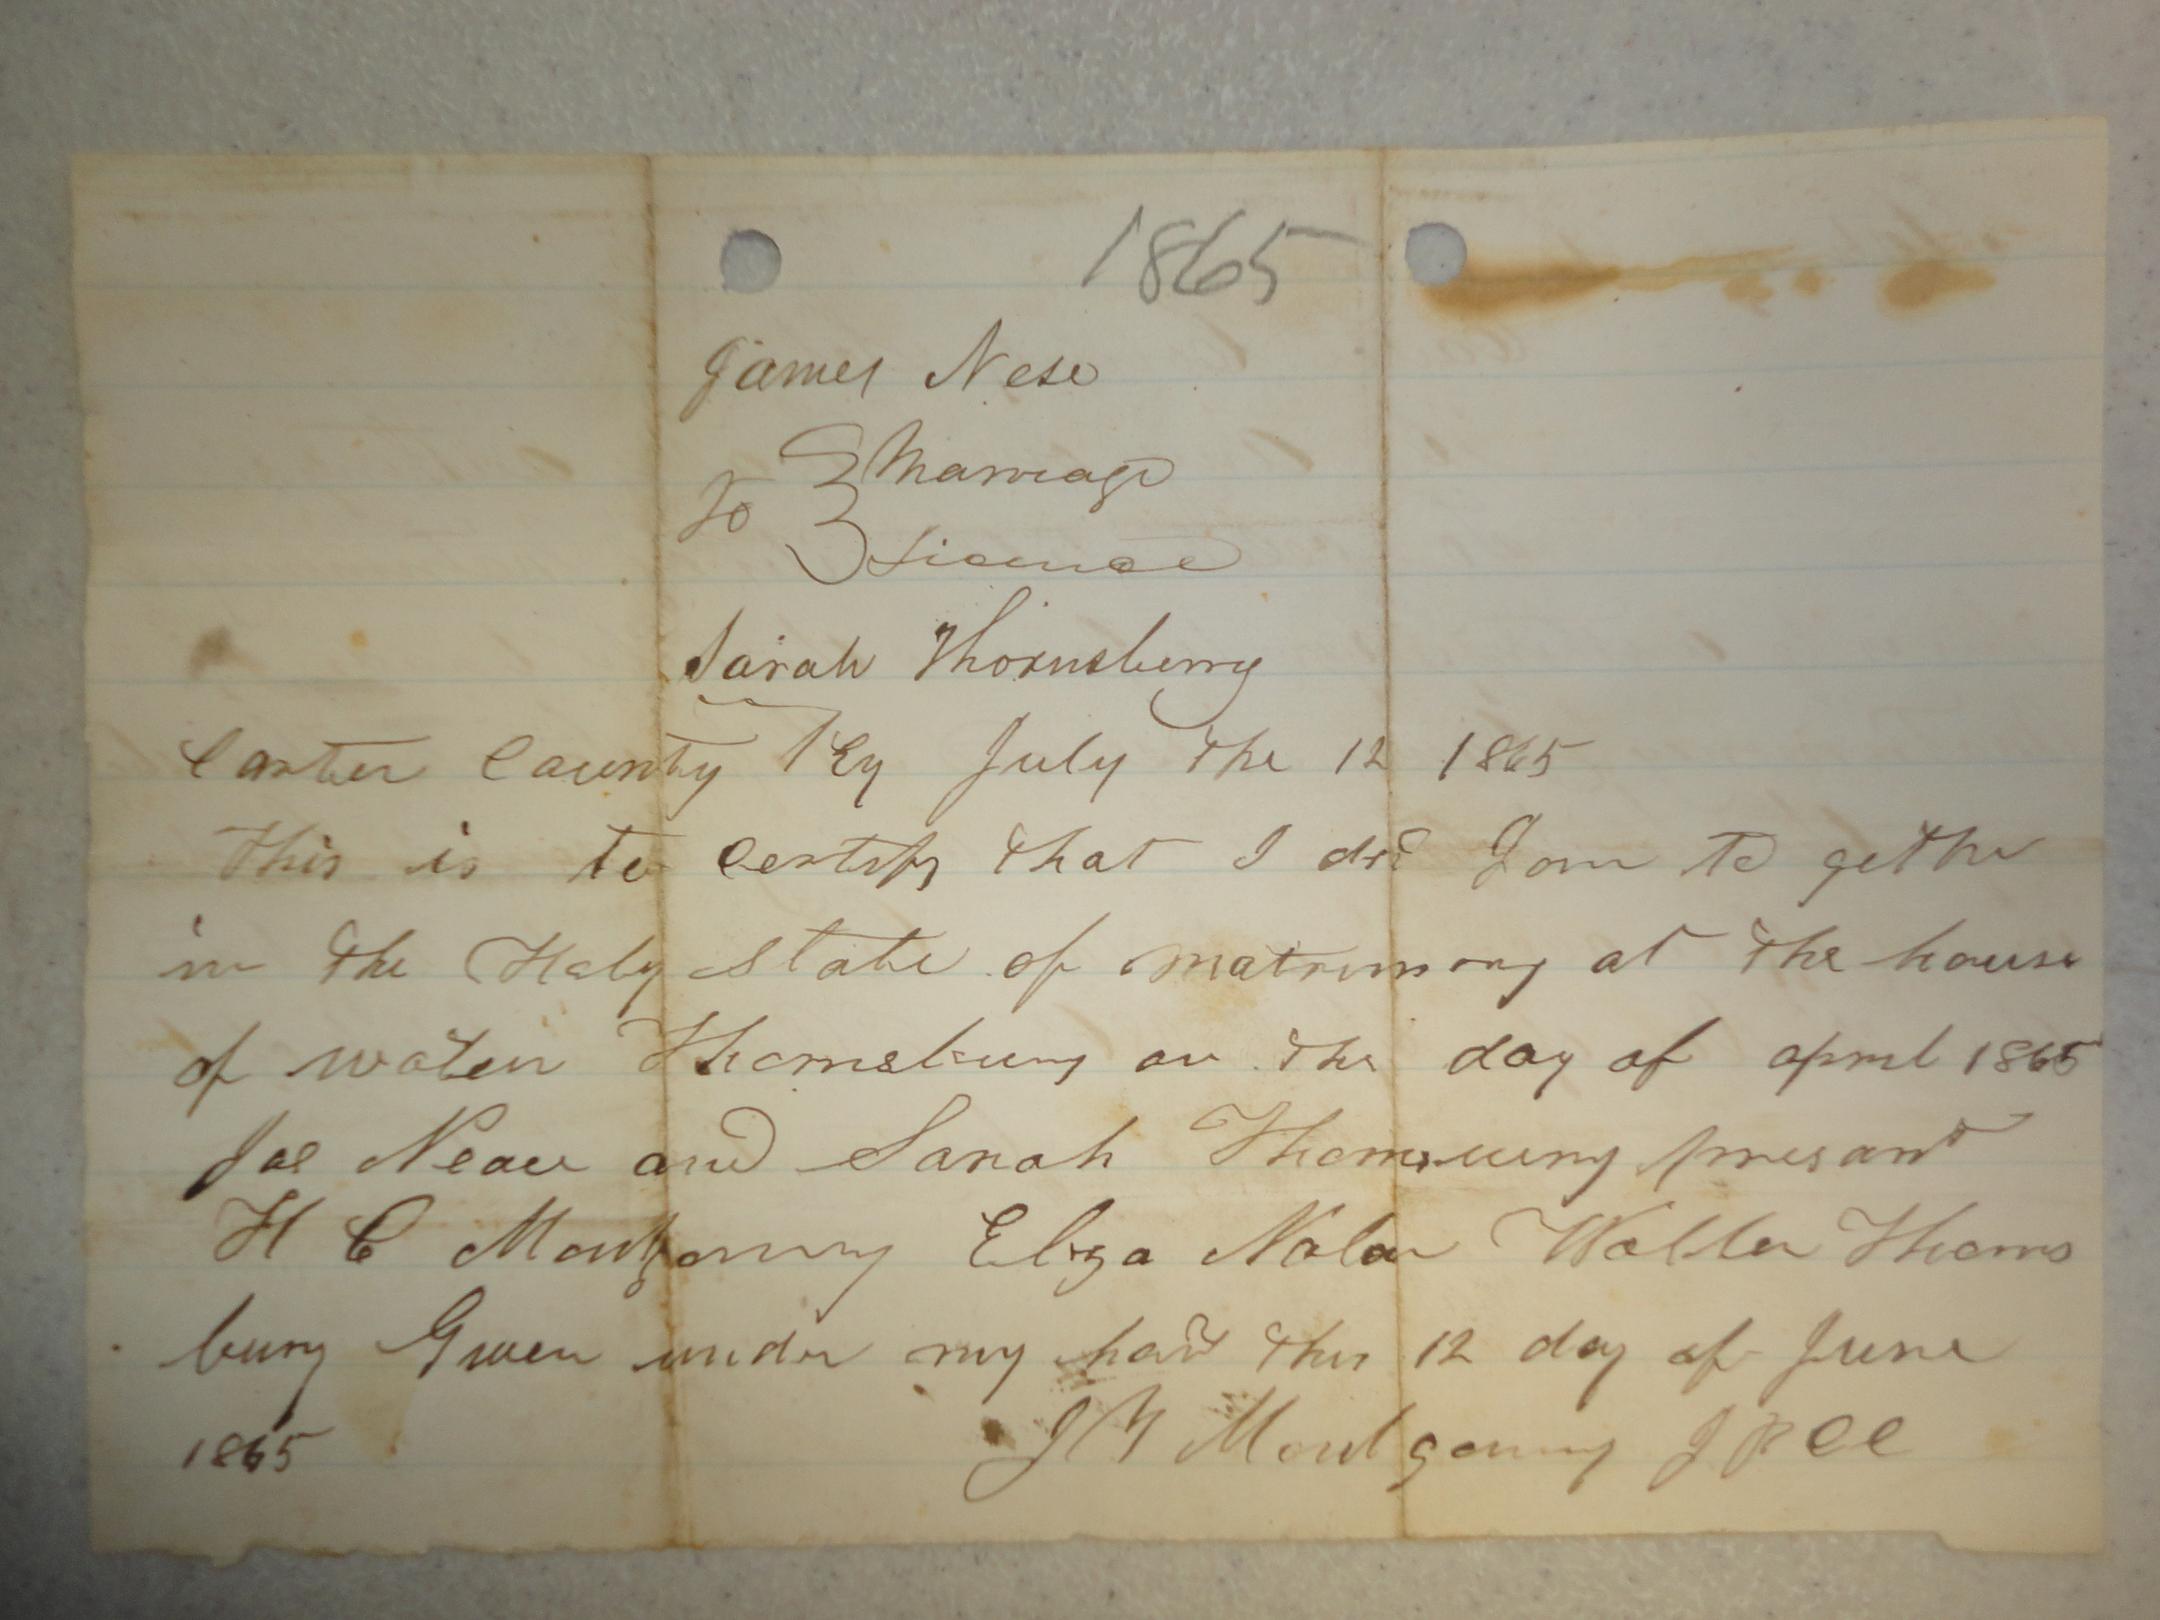 1865
James Nese
to Marriage
Licence
Sarah Thornsberry
Carter County Ky July the 12 1865
This is to Certify that I did Join to gether
in the Holy state of matrimony at the house
of Thornsbury on the day of april 1865
and Sarah present
H C Montgomery Eliza Nolan Walter Thorns
bury Given under my hand this 12 day of June
1865 Montgomery J P C C